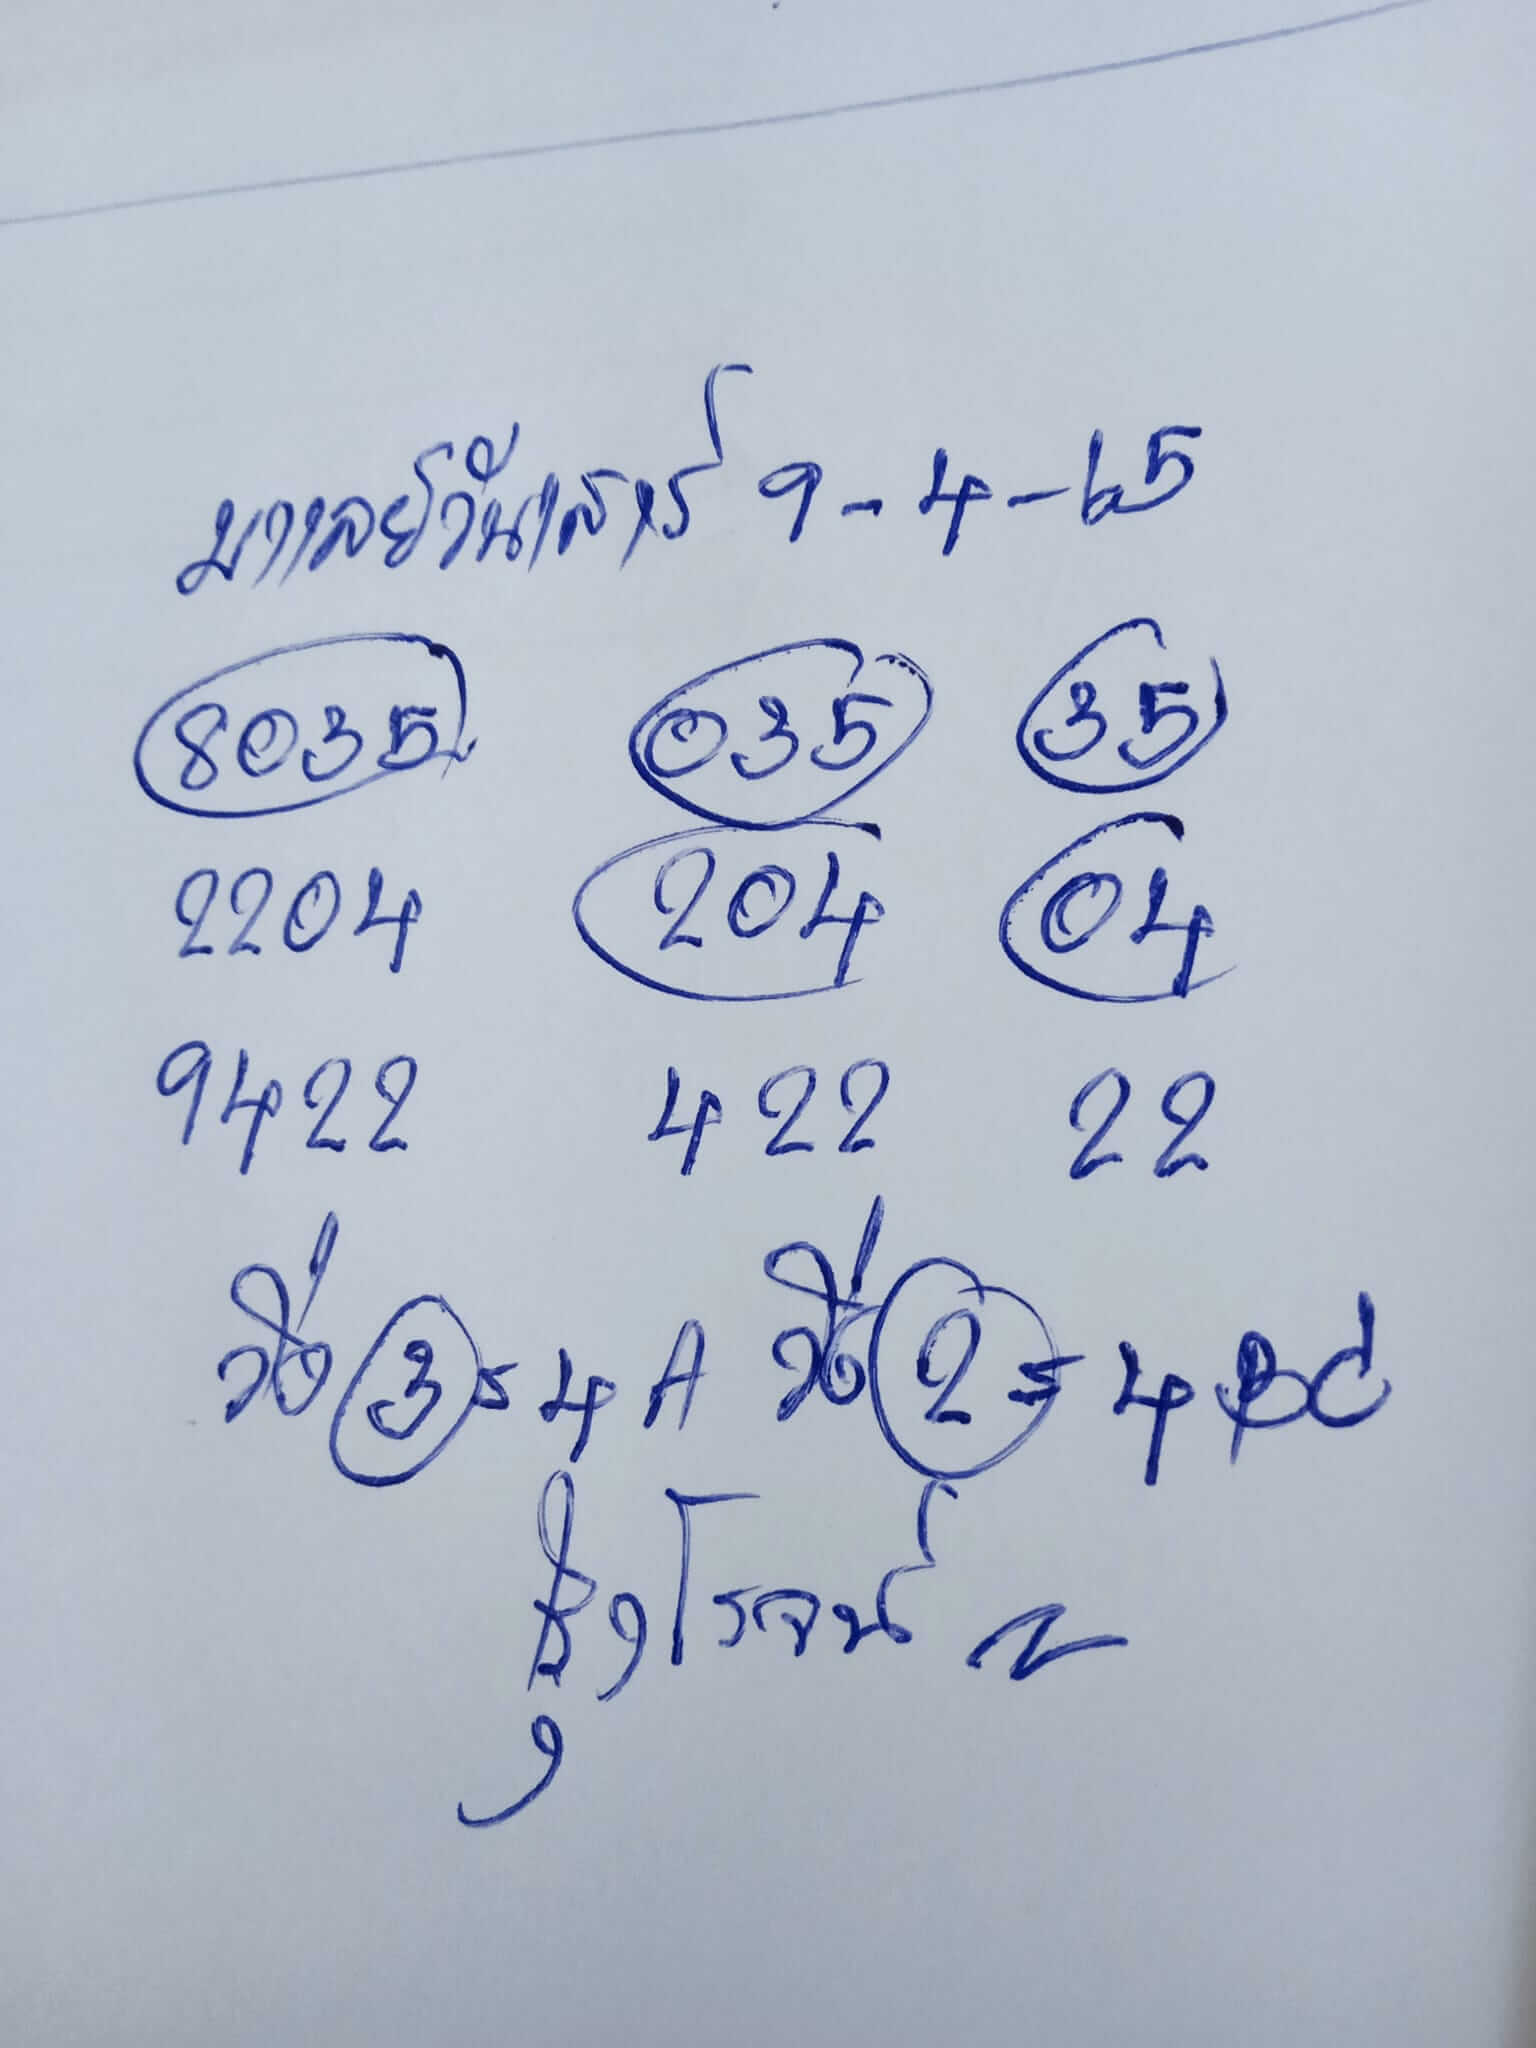 มาเลย์วันเสาร์ 9-4-65
8035 035 35
2204 204 04
9422 422 22
วิ่ง 3 = 4 A วิ่ง 2 = 4 BC
โรจน์